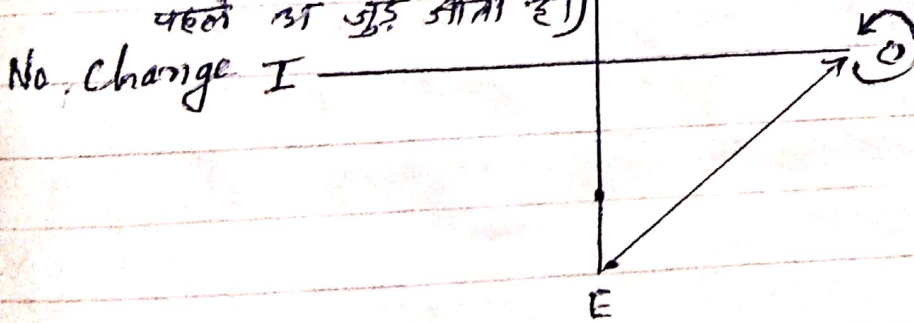 पहले अ जुड़ जाता है।)
No Change I
O
E